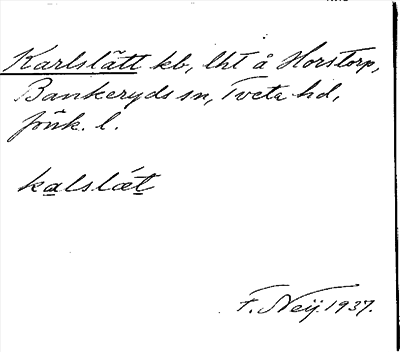 Karlslätt kb, lht å Horstorp,
Bankeryds sn, Tveta hd,
Jönk. l.
kalslæt
F. Neij. 1937.